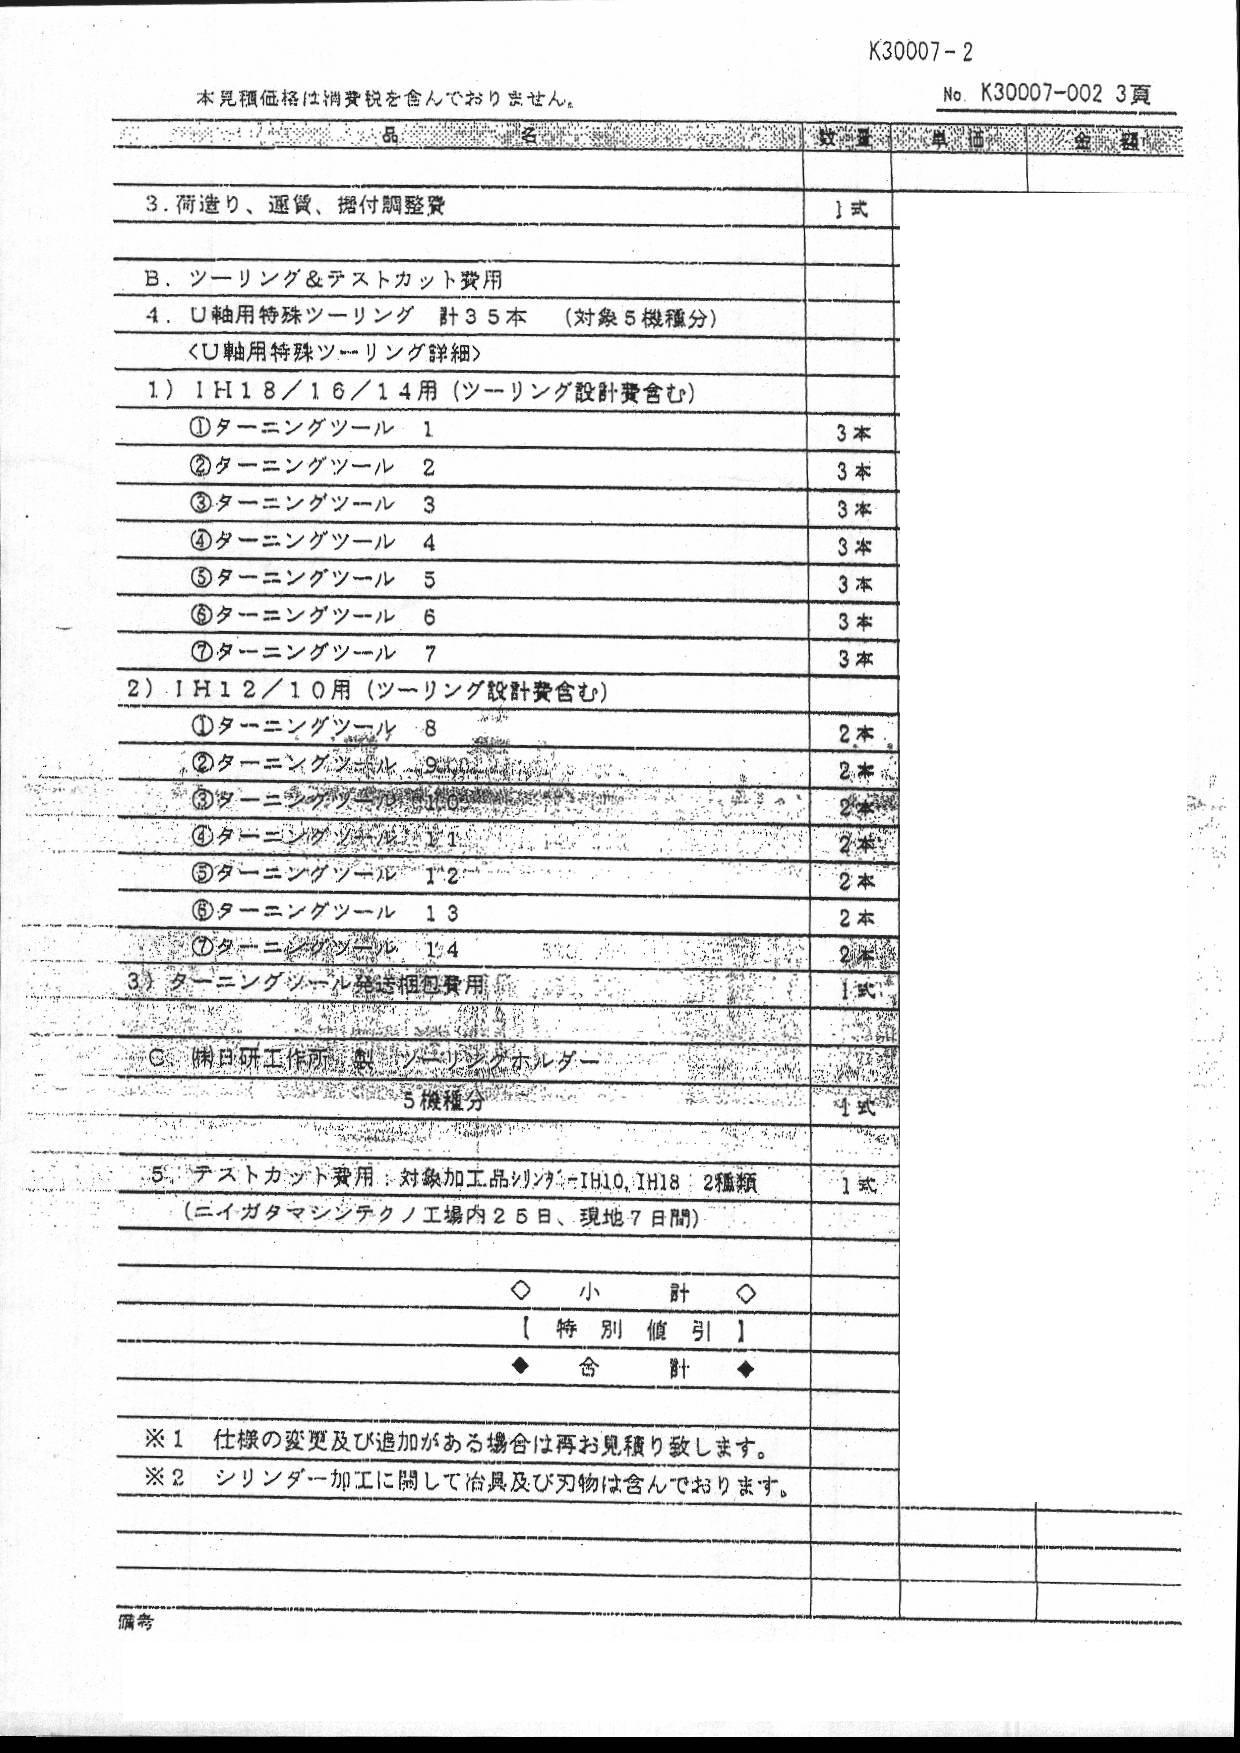 K30007-2
本見積価格は消費税を含んでおりません。
No. K30007-002 3頁
品 名 数 量 単 価 金 額
3.荷造り、運賃、据付調整費 1式
B. ツーリング&テストカット費用
4. U軸用特殊ツーリング 計35本 (対象5機種分)
<U軸用特殊ツーリング詳細>
1) IH18/16/14用(ツーリング設計費含む)
①ターニングツール 1 3本
②ターニングツール 2 3本
③ターニングツール 3 3本
④ターニングツール 4 3本
⑤ターニングツール 5 3本
⑥ターニングツール 6 3本
⑦ターニングツール 7 3本
2) IH12/10用(ツーリング設計費含む)
①ターニングツール 8 2本
②ターニングツール 9 2本
③ターニングツール 10 2本
④ターニングツール 11 2本
⑤ターニングツール 12 2本
⑥ターニングツール 13 2本
⑦ターニングツール 14 2本
3) ターニングツール発送梱包費用 1式
C ㈱日研工作所 製 ツーリングホルダー
5機種分 1式
5. テストカット費用:対象加工品シリンダーIH10,IH18 2種類 1式
(ニイガタマシンテクノ工場内25日、現地7日間)
◇ 小 計 ◇
【 特 別 値 引 】
◆ 合 計 ◆
※1 仕様の変更及び追加がある場合は再お見積り致します。
※2 シリンダー加工に関して冶具及び刃物は含んでおります。
備考